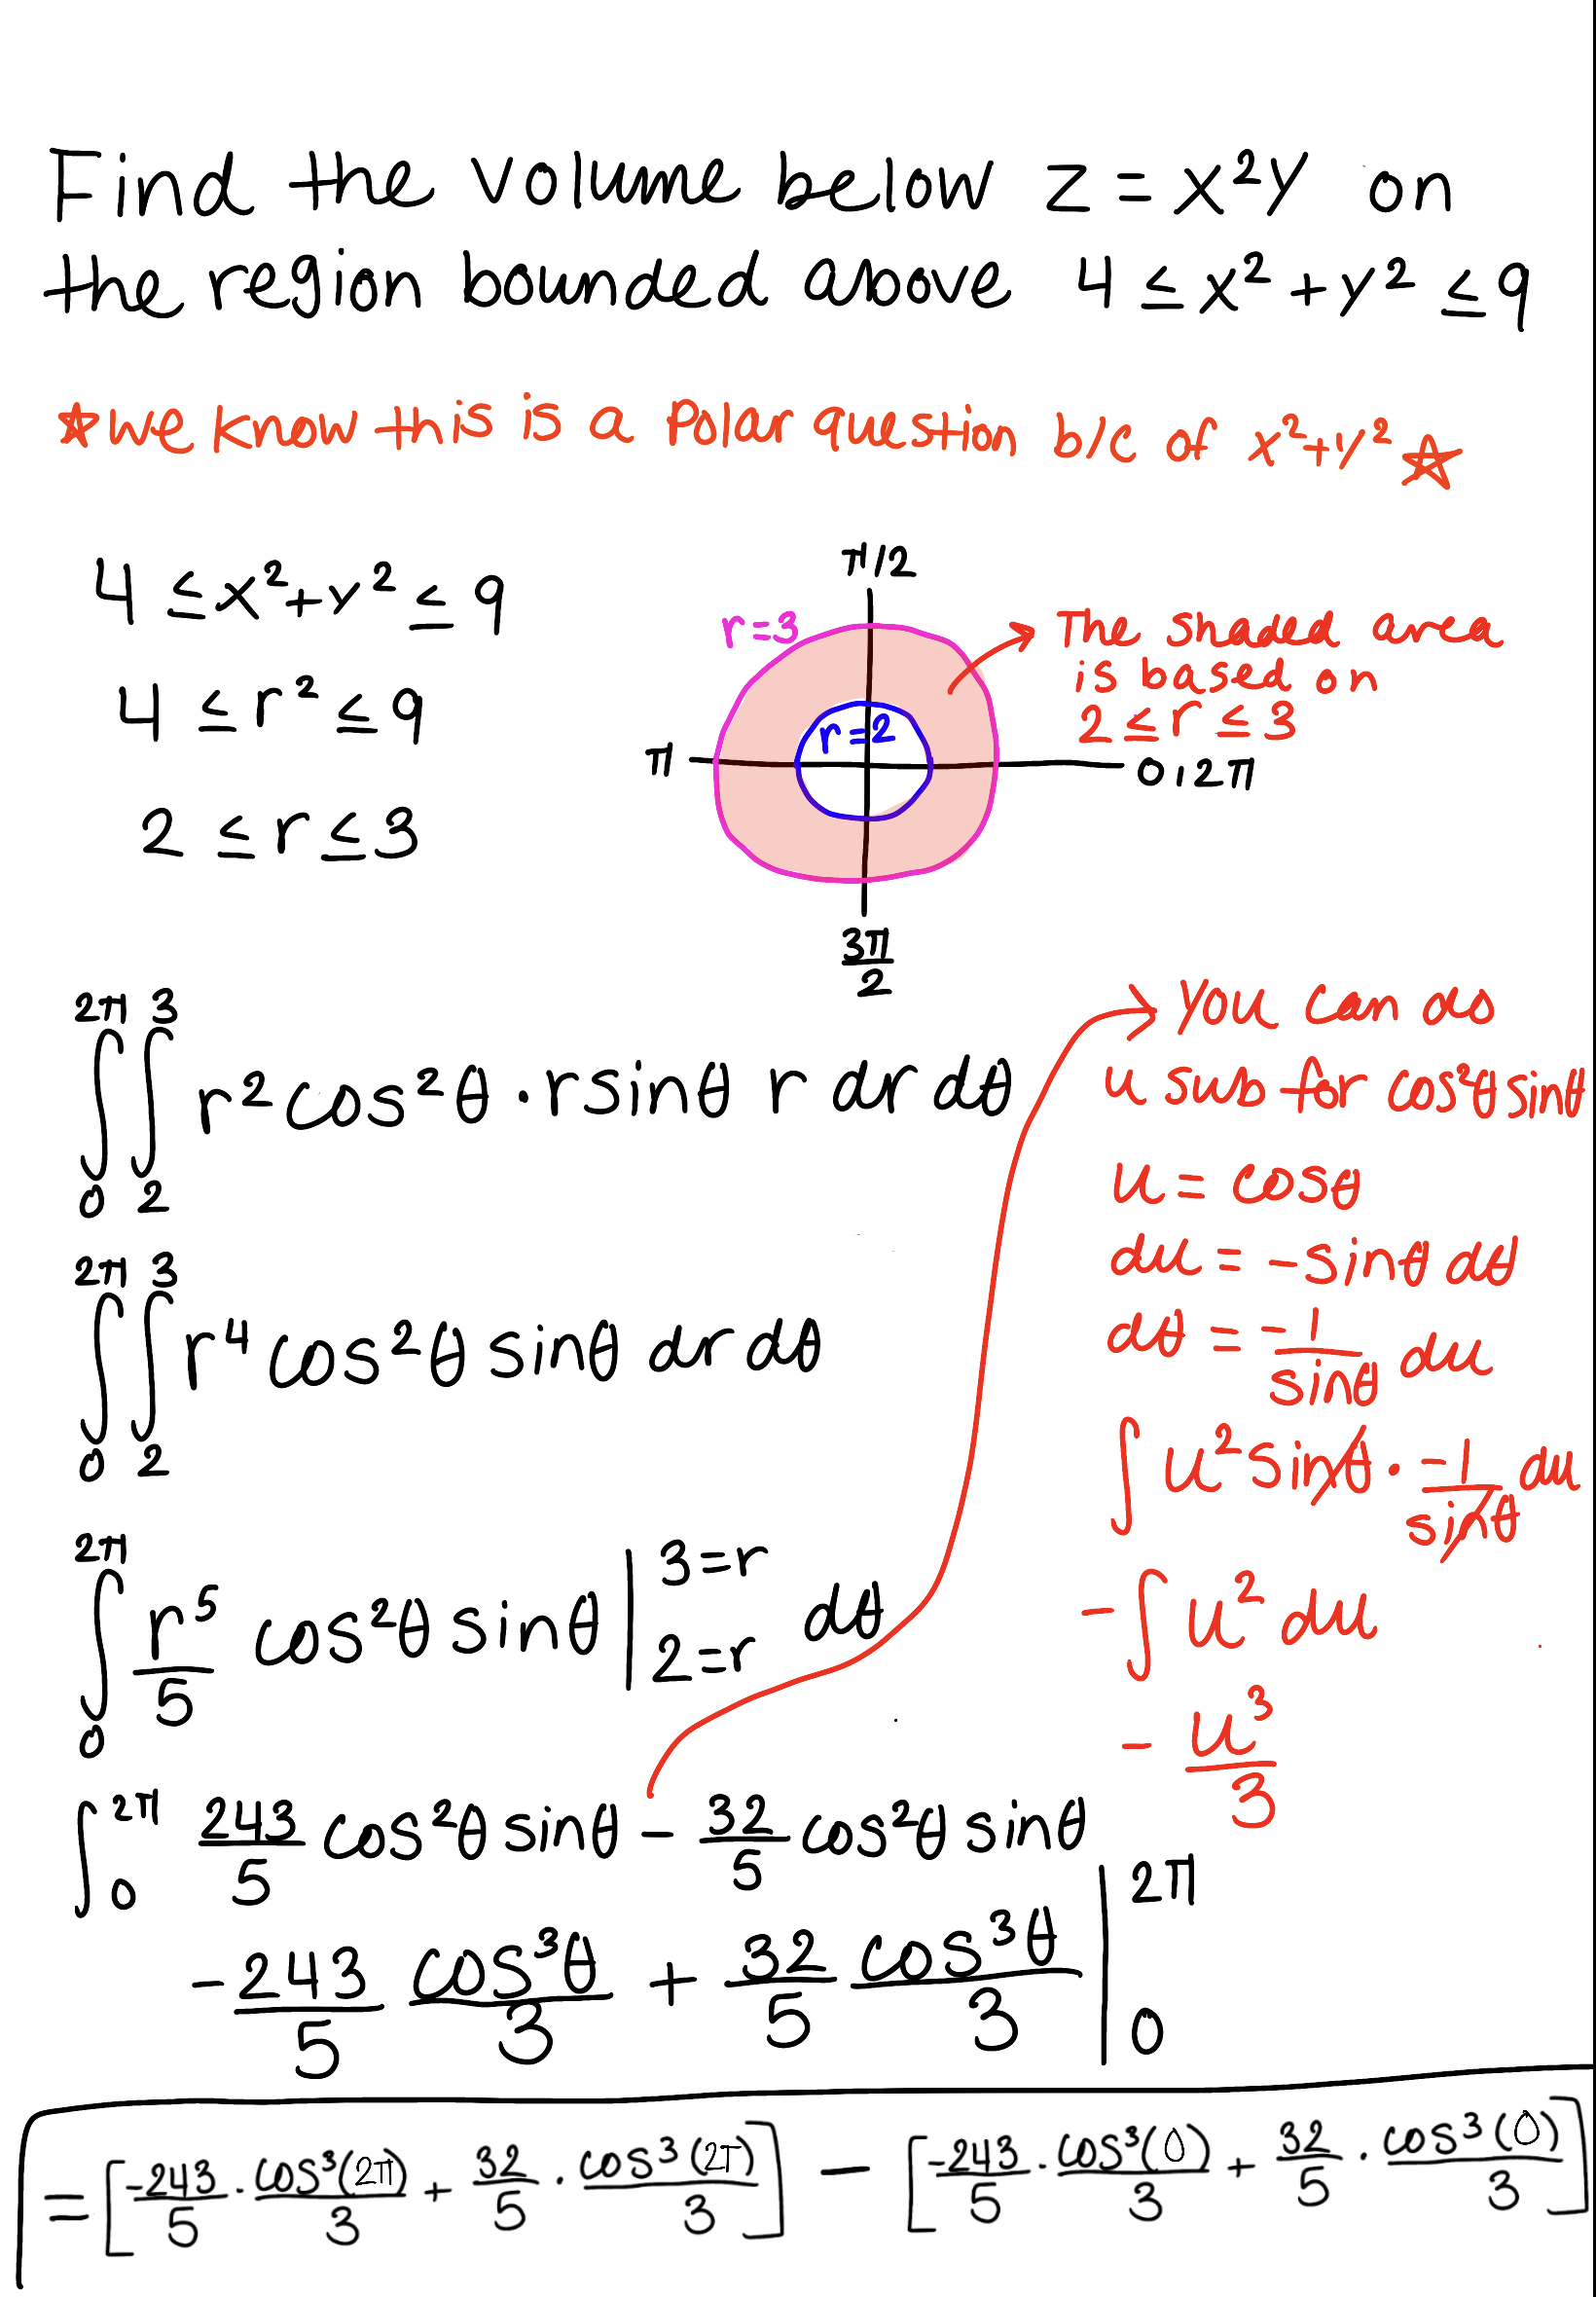 Find the volume below z = x²y on
the region bounded above 4 ≤ x² + y² ≤ 9
☆we know this is a Polar question b/c of x²+y² ☆
4 ≤ x²+y² ≤ 9
4 ≤ r² ≤ 9
2 ≤ r ≤ 3
π/2
r=3
r=2
π
0,2π
3π/2
The shaded area
is based on
2 ≤ r ≤ 3
∫₀^2π ∫₂^3 r² cos²θ · r sinθ r dr dθ
∫₀^2π ∫₂^3 r⁴ cos²θ sinθ dr dθ
∫₀^2π r⁵/5 cos²θ sinθ | 3=r 2=r dθ
∫₀^2π 243/5 cos²θ sinθ − 32/5 cos²θ sinθ
-243/5 cos³θ/3 + 32/5 cos³θ/3 | 2π 0
You can do
u sub for cos²θ sinθ
u = cosθ
du = -sinθ dθ
dθ = -1/sinθ du
∫ u² sinθ · -1/sinθ du
- ∫ u² du
- u³/3
= [-243/5 · cos³(2π)/3 + 32/5 · cos³(2π)/3] − [-243/5 · cos³(0)/3 + 32/5 · cos³(0)/3]